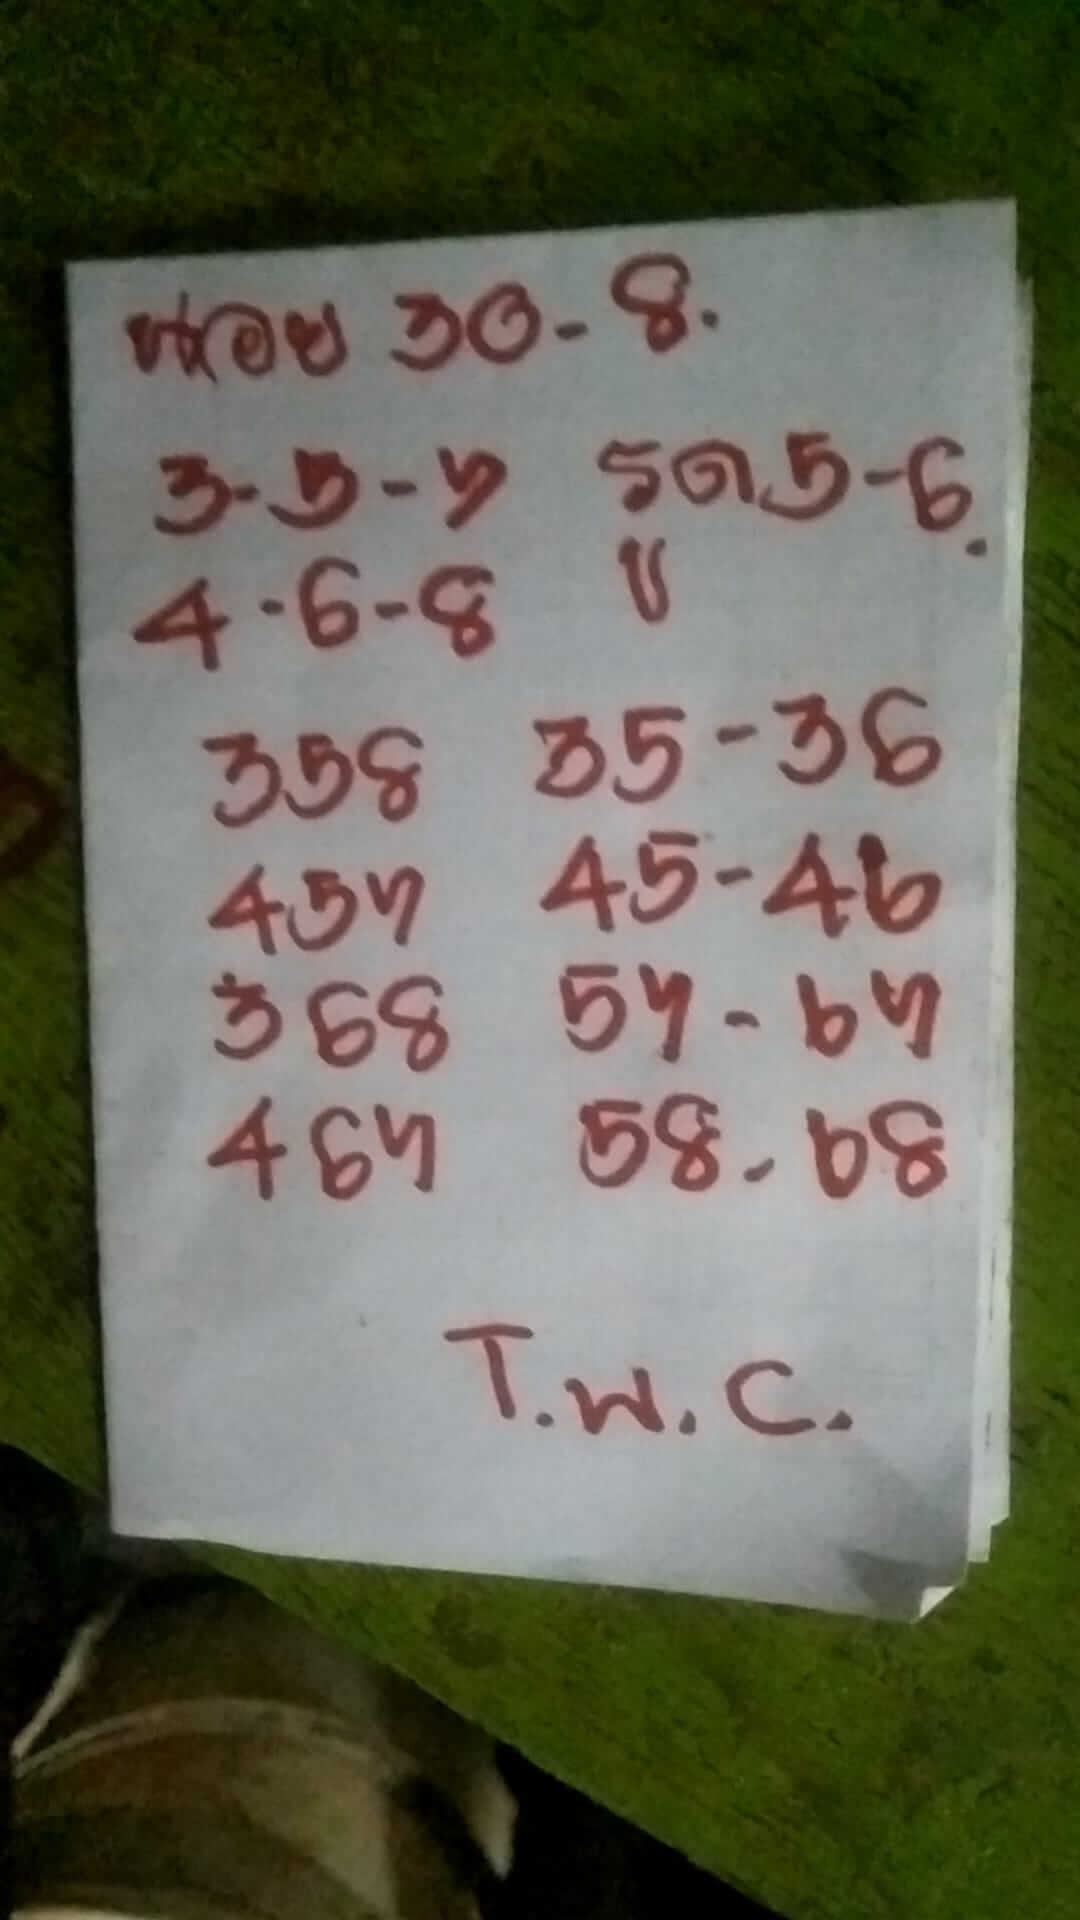 หน่อย 30-8.
3-5-7 รูด 5-6.
4-6-8 บ
358 35-36
457 45-46
368 57-67
467 58-68
T.W.C.